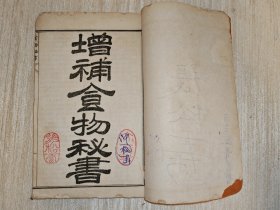 增補食物秘書